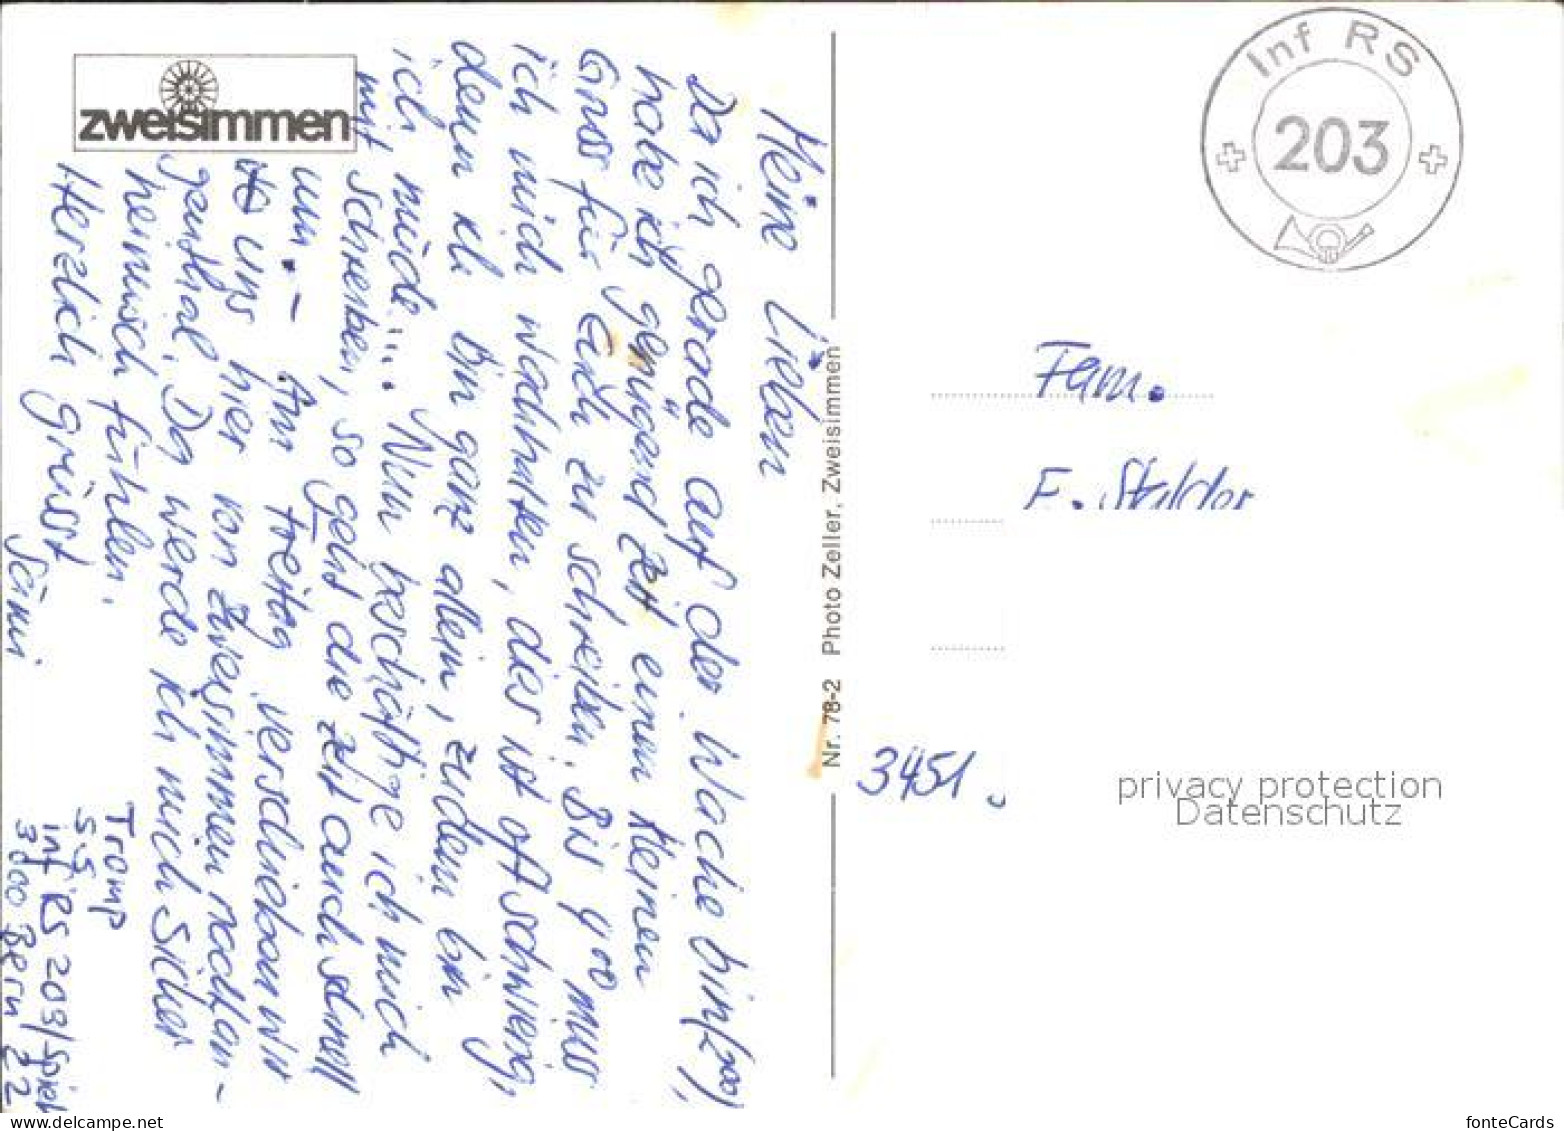 zweisimmen
Meine Lieben
Da ich gerade auf der Wache bin (2001),
habe ich genügend Zeit einen kleinen
Gruss für Euch zu schreiben. Bis 4°° muss
ich mich wachhalten, dies ist oft schwierig,
denn ich bin ganz allein, zudem bin
ich müde.... Nun beschäftige ich mich
mit schreiben, so geht die Zeit auch schnell
um.- Am Freitag verschieben wir
uns hier von Zweisimmen nach Lan-
genthal. Da werde ich mich sicher
heimisch fühlen.
Herzlich grüsst
Sämi
Tromp
S.S
Inf RS 203/Spiel
3000 Bern 22
Nr. 78-2 Photo Zeller, Zweisimmen
Inf RS
203
Fam.
F. Stalder
3451
privacy protection
Datenschutz
www.delcampe.net
fonteCards